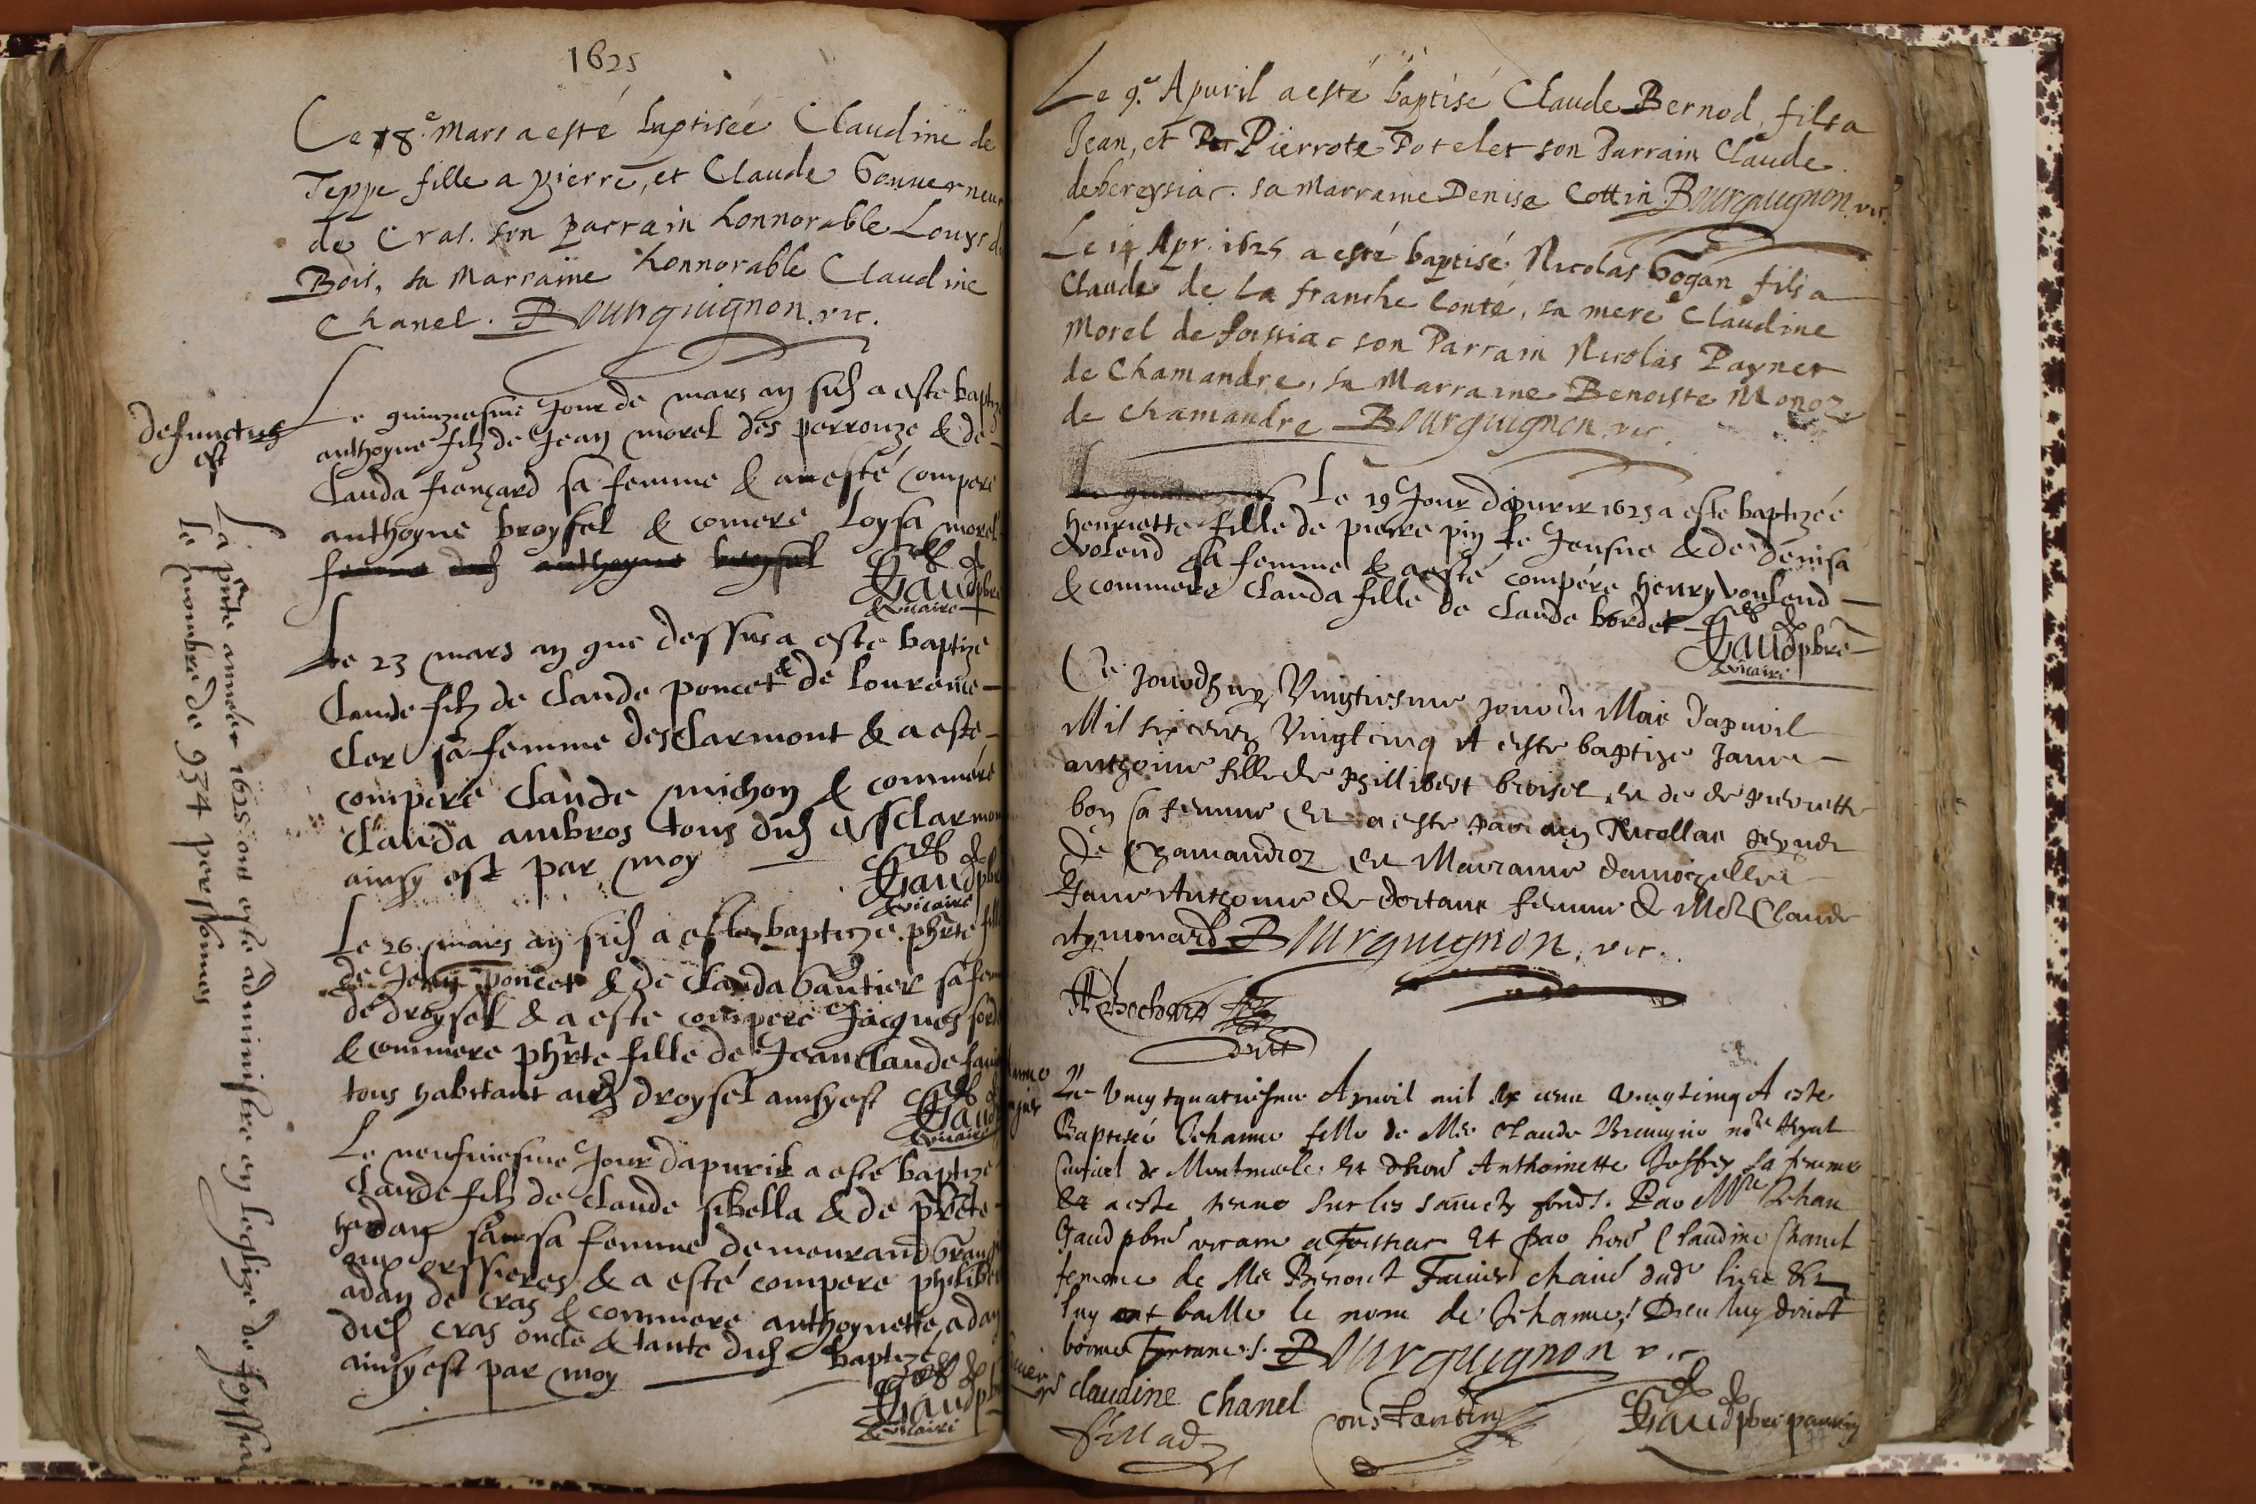 1625
Le 18.e Mars a esté baptisée Claudine de
Teppe fille a pierre, et Claude Gouuerneur
de Cras. son parrain honnorable Louys d
Bois, sa Marraine honnorable Claudine
Chanel. Bourguignon. vic.
defunctus
est
Le quinziesme Jour de mars an sud a este baptize
anthoyne filz de Jean morel des perrouze & de
Clauda françard sa femme & a esté compere
anthoyne broysel & comere Loysa morel
femme dud anthoyne broysel
Gaud pbre
& vicaire
Le 23 mars an que dessus a este baptize
Claude filz de Claude poncet & de Lourence
Cler sa femme desclarmont & a este
compere Claude michon & commere
Clauda ambros tous dud esclarmon
ainsy est par moy
Gaud pbre
& vicaire
Le 26 mars an sud a este baptize phrte fille
de Jean poncet & de Clauda Gautier sa fem
de droysel & a este compere Jacques
& commere phrte fille de Jean Claude
tous habitant aud droysel ainsy est
Gaud
& vicaire
Le neufuiesme Jour dapuril a esté baptize
Claude filz de Claude sibella & de prete
sa femme demeurand
aux orssieres & a esté compere philibe
adan de Cras & commere anthoynette adan
dud Cras oncle & tante dud baptize
ainsy est par moy
Gaud pb
& vicaire
La pnte annee 1625 ont este administre en leglize de foyssia
le nombre de 934 perssonnes
Le 9.e Apuril a esté baptisé Claude Bernod, fils a
Jean, et Pierrote Potelet son Parrain Claude
debereysiac. sa Marraine Denise Cottin Bourguignon. vic.
Le 14 Apr. 1625 a esté baptisé Nicolas Gogan fils a
Claude de la franche Conté, sa mere Claudine
Morel de foissiac son Parrain Nicolas Paynet
de Chamandre, sa Marraine Benoiste Monoz
de Chamandre Bourguignon. vic.
Le 19 Jour dapuril 1625 a este baptizée
henriette fille de pierre pin le Jeusne & de denisa
volend sa femme & a esté compére henry voulend
& commere Clauda fille de Claude bordet
Gaud pbre
& vicaire
Ce jourdhuy Vingtiesme jour du Mois dapuril
Mil six centz Vingt cinq A este baptize Jane
anthoine fille de Phillibert broisel et de pierrette
bon sa femme Et a este parrain Nicollas peynet
De Chamandroz et Marraine damoizelle
Jane Anthoine de dortans femme de Mr Claude
Aymonard Bourguignon. vic.
Le Vingtquatriesme Apuril mil six cent vingt cinq A este
Baptisée Jehanne fille de Me Claude nore Royal
Curial de Montmerle. Et dhon Anthoinette Joffrey sa femme
Et a este tenue sur les sainctz fondz. Par Mre Jehan
Gaud pbre vicaire a foissiac Et par hon Claudine Chanel
femme de Me Benoict
luy ont baille le nom de Jehanne! Dieu luy doint
bonne Bourguignon vic
Claudine Chanel
Constantin
Gaud pbre parrin